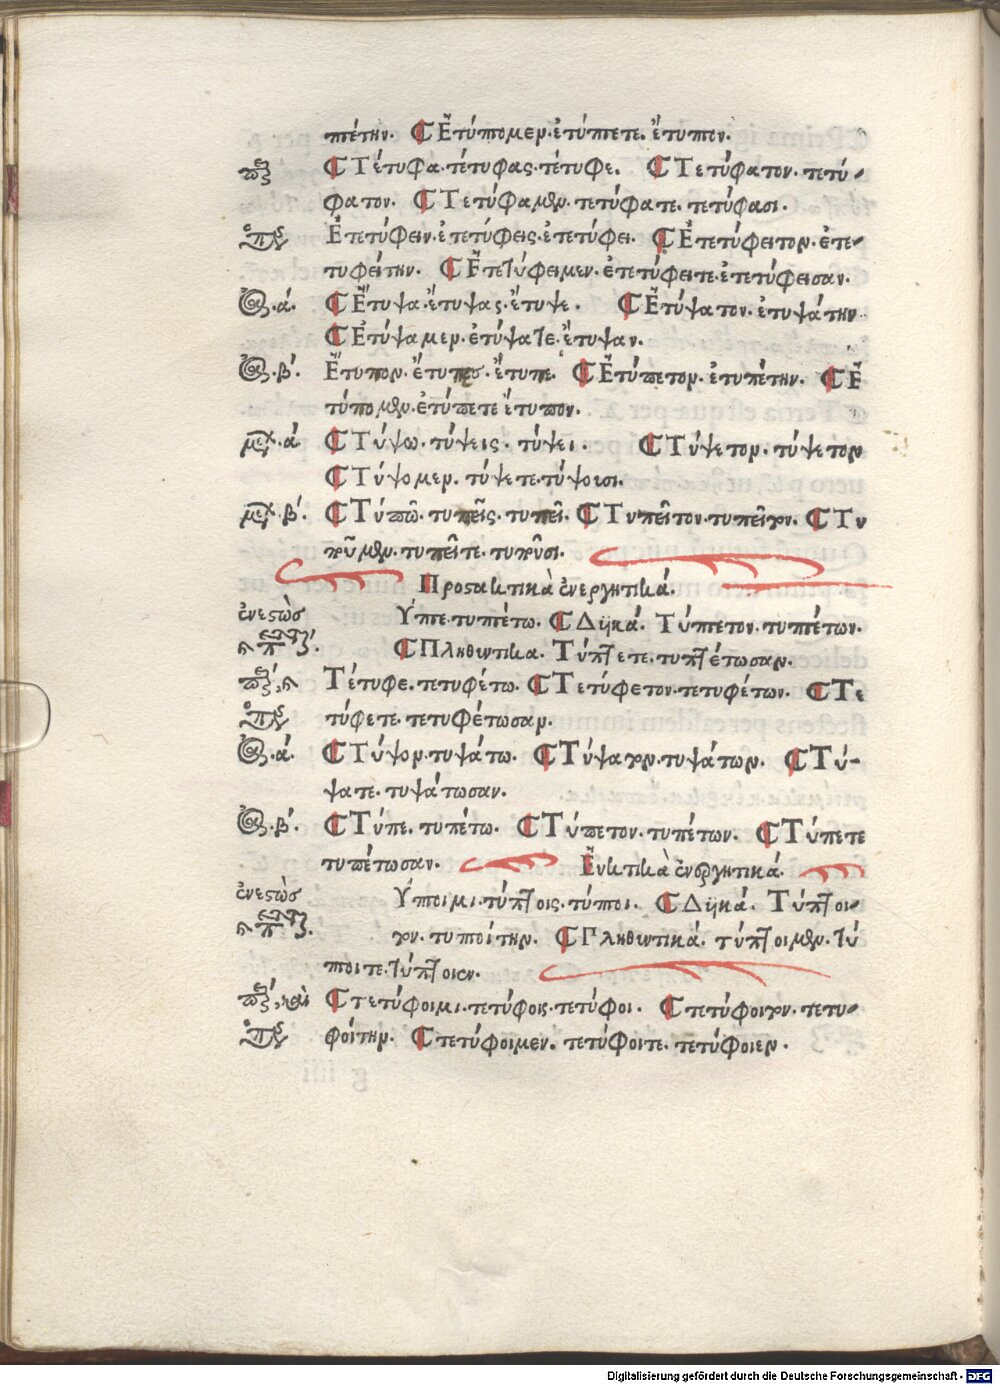 πτέτην. Ἐτύπτομεν. ἐτύπτετε. ἔτυπτον.
Τέτυφα. τέτυφας. τέτυφε. Τετύφατον. τετύ-
φατον. Τετύφαμεν. τετύφατε. τετύφασι.
Ἐτετύφειν. ἐτετύφεις. ἐτετύφει. Ἐτετύφειτον. ἐτε-
τυφείτην. Ἐτετύφειμεν. ἐτετύφειτε. ἐτετύφεισαν.
ά. Ἔτυψα. ἔτυψας. ἔτυψε. Ἐτύψατον. ἐτυψάτην
Ἐτύψαμεν. ἐτύψατε. ἔτυψαν.
β΄. Ἔτυπον. ἔτυπες. ἔτυπε. Ἐτύπετον. ἐτυπέτην. Ἐ
τύπομεν. ἐτύπετε ἔτυπον.
ά Τύψω. τύψεις. τύψει. Τύψετον. τύψετον
Τύψομεν. τύψετε. τύψουσι.
β΄. Τυπῶ. τυπεῖς. τυπεῖ. Τυπεῖτον. τυπεῖτον. Τυ
ποῦμεν. τυπεῖτε. τυποῦσι.
Προστακτικὰ ἐνεργητικά.
ἐνεστὼς Τύπτε. τυπτέτω. Δυϊκά. Τύπτετον. τυπτέτων.
Πληθυντικα. Τύπτετε. τυπτέτωσαν.
Τέτυφε. τετυφέτω. Τετύφετον. τετυφέτων. Τε
τύφετε. τετυφέτωσαν.
ά. Τύψον. τυψάτω. Τύψατον. τυψάτων. Τύ-
ψατε. τυψάτωσαν.
β΄. Τύπε. τυπέτω. Τύπετον. τυπέτων. Τύπετε
τυπέτωσαν. Ἐυκτικὰ ἐνεργητικά.
ἐνεστὼς Ύποιμι. τύπτοις. τύποι. Δυϊκά. Τύπτοι-
τον. τυποίτην. Πληθυντικά. τύπτοιμεν. τύ
ποιτε. τύπτοιεν.
καὶ τετύφοιμι. τετύφοις. τετύφοι. τετύφοιτον. τετυ-
φοίτην. τετύφοιμεν. τετύφοιτε. τετύφοιεν.
Digitalisierung gefördert durch die Deutsche Forschungsgemeinschaft - DFG